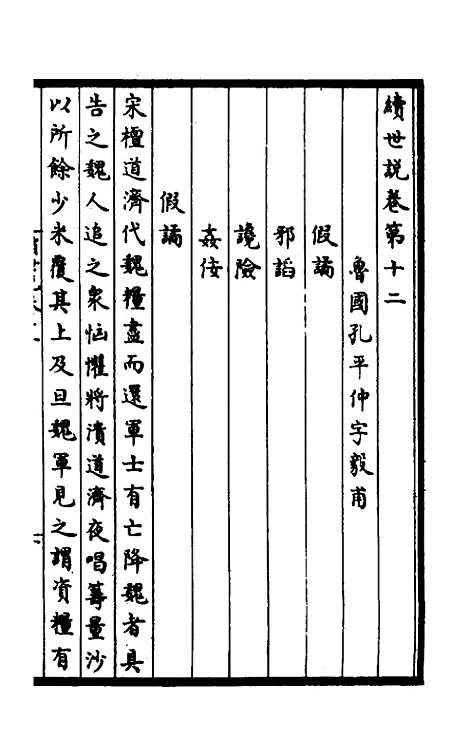 續世說卷第十二
魯國孔平仲字毅甫
假譎
邪諂
讒險
姦佞
假譎
宋檀道濟代魏糧盡而還軍士有亡降魏者具
告之魏人追之衆恟懼將潰道濟夜唱籌量沙
以所餘少米覆其上及旦魏軍見之謂資糧有